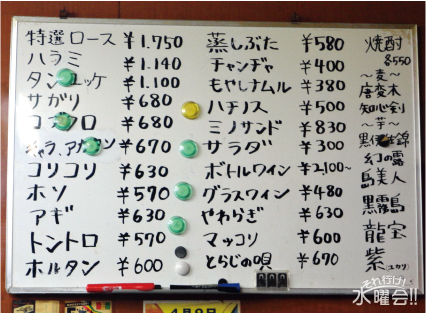 特選ロース ¥1.750
ハラミ ¥1.140
タンユッケ ¥1.100
サガリ ¥680
¥680
¥670
コリコリ ¥630
ホソ ¥570
アギ ¥630
トントロ ¥570
ホルタン ¥600
蒸しぶた ¥580
チャンヂャ ¥400
もやしナムル ¥380
ハチノス ¥500
ミノサンド ¥830
サラダ ¥300
ボトルワイン ¥2,100~
グラスワイン ¥480
やわらぎ ¥630
マッコリ ¥600
とらじの唄 ¥670
焼酎
各550
~麦~
唐変木
知心剣
~芋~
幻の露
島美人
黒霧島
龍宝
紫(ユカリ)
それ行け!
水曜会!!